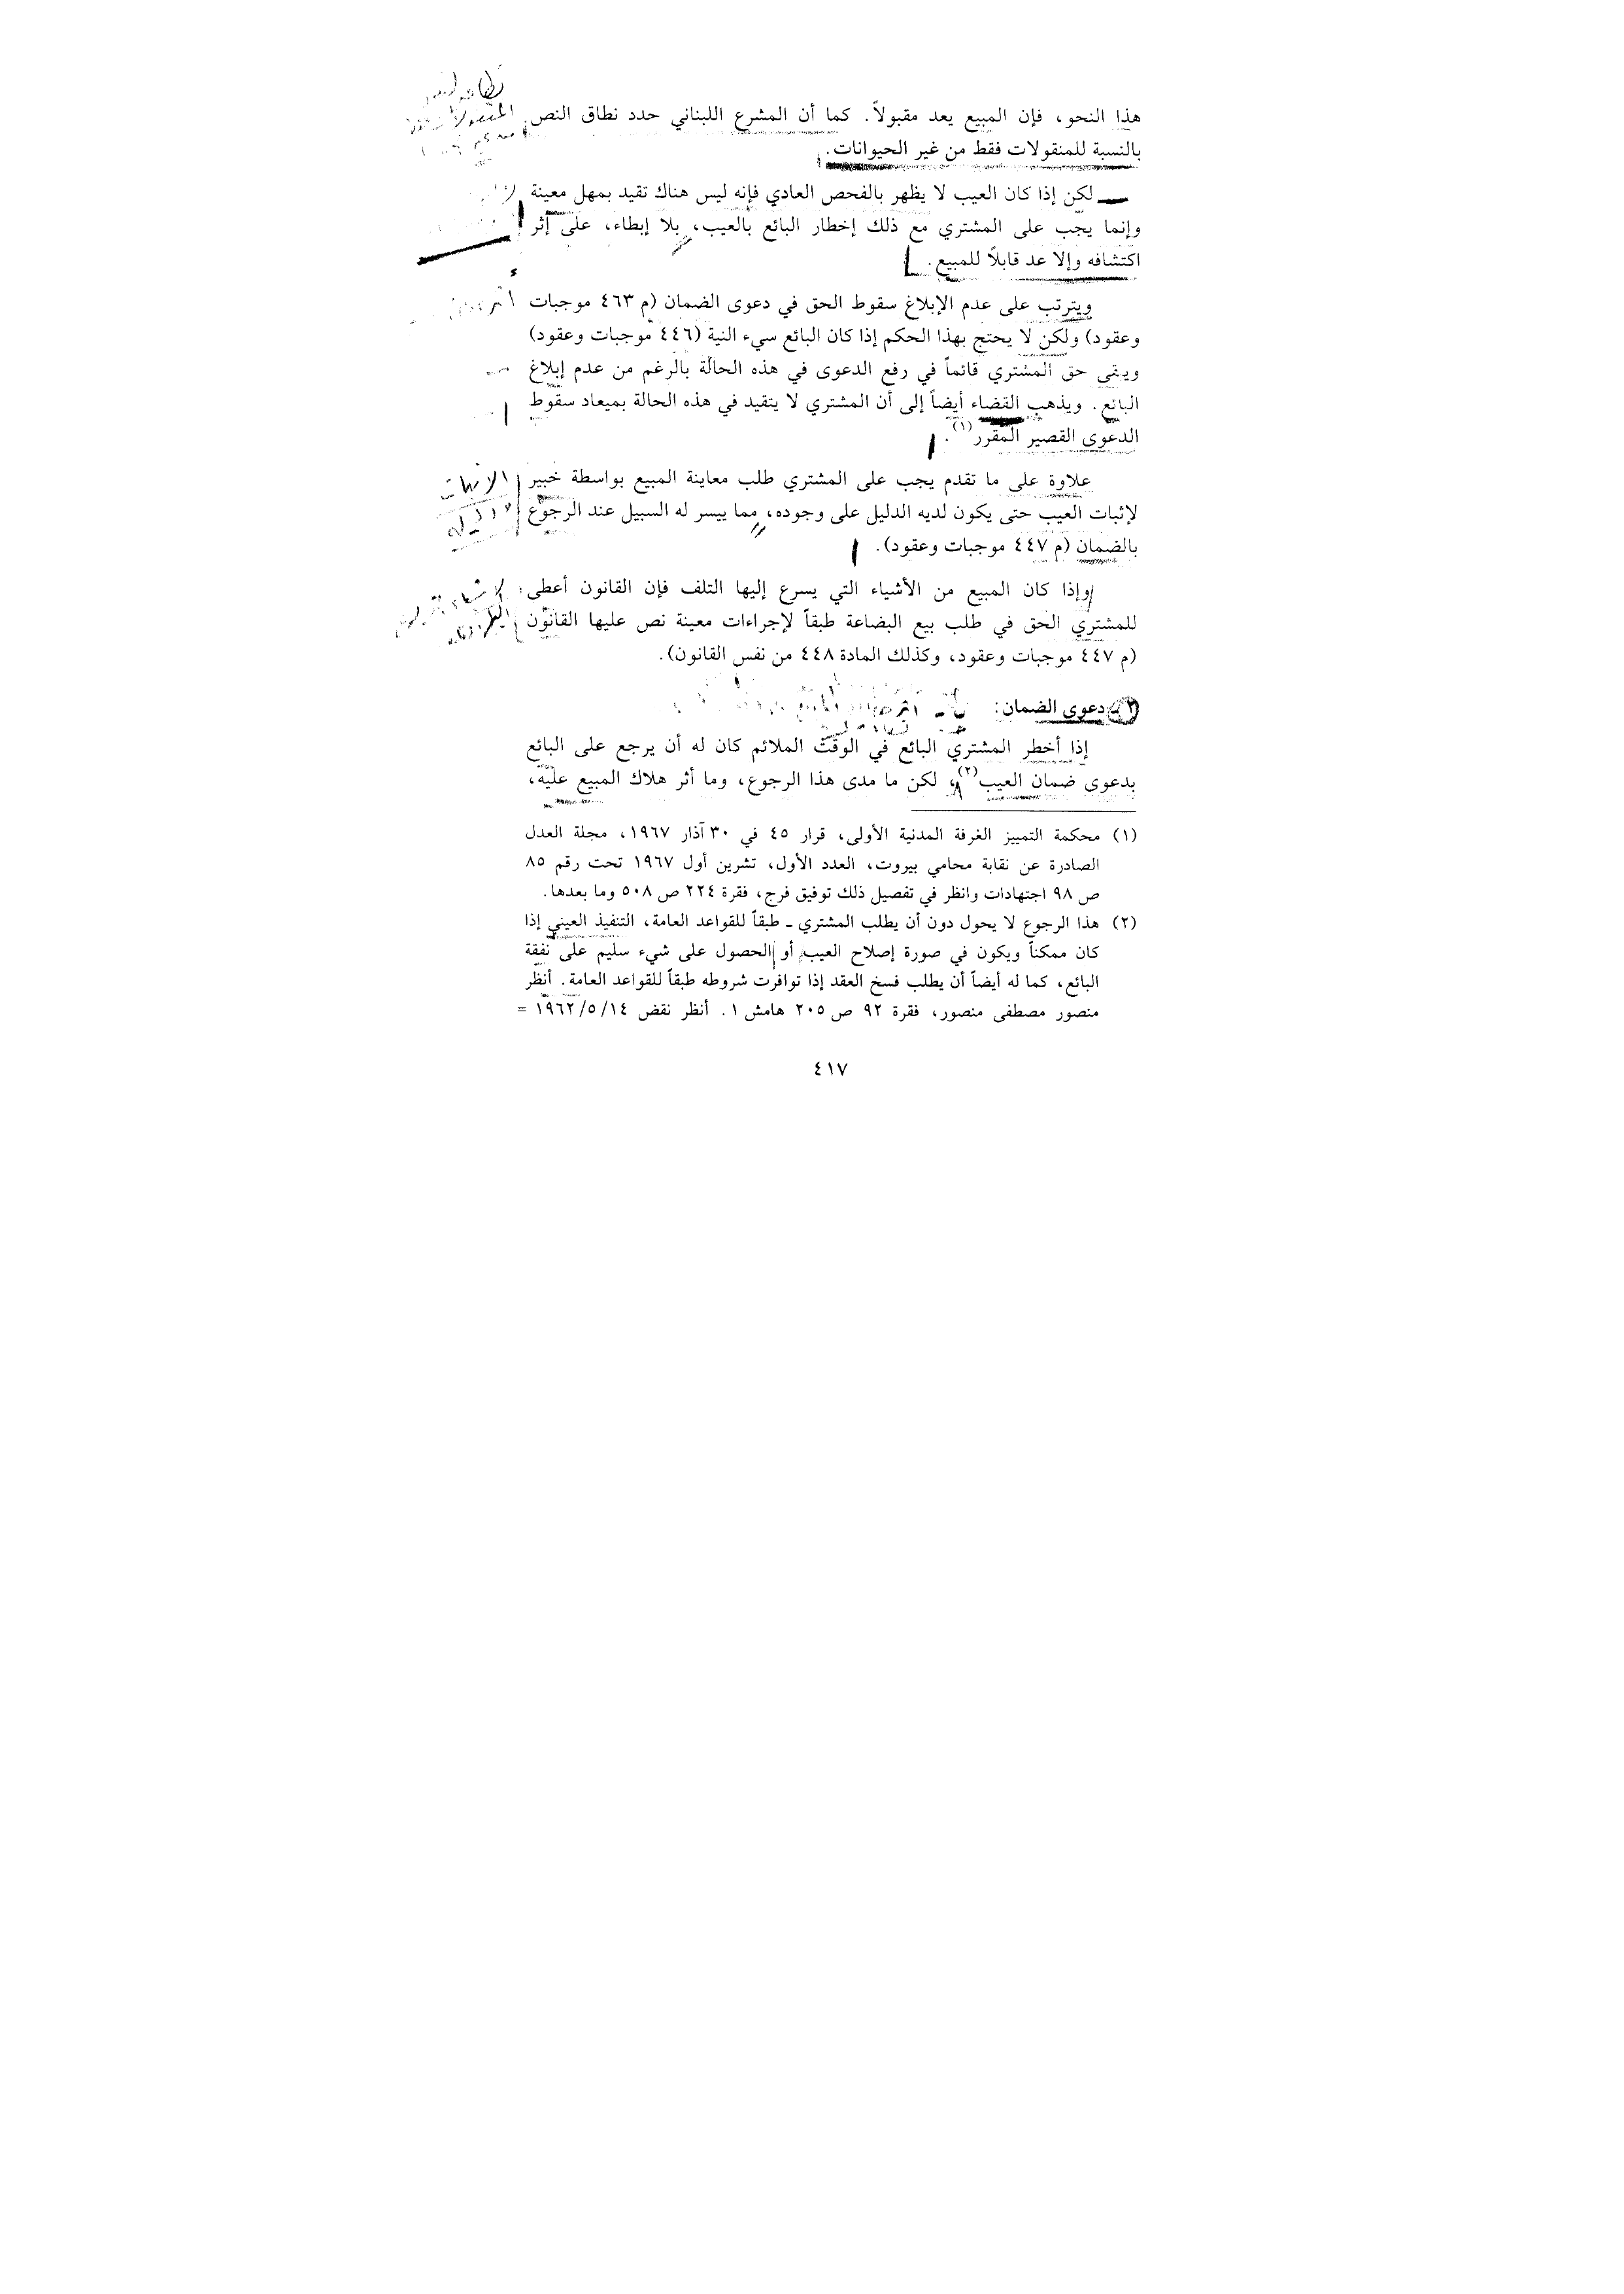 هذا النحو، فإن المبيع يعد مقبولاً. كما أن المشرع اللبناني حدد نطاق النص
بالنسبة للمنقولات فقط من غير الحيوانات.
لكن إذا كان العيب لا يظهر بالفحص العادي فإنه ليس هناك تقيد بمهل معينة
وإنما يجب على المشتري مع ذلك إخطار البائع بالعيب، بلا إبطاء، على إثر
اكتشافه وإلا عد قابلاً للمبيع.
ويترتب على عدم الإبلاغ سقوط الحق في دعوى الضمان (م ٤٦٣ موجبات
وعقود) ولكن لا يحتج بهذا الحكم إذا كان البائع سيء النية (٤٤٦ موجبات وعقود)
ويبقى حق المشتري قائماً في رفع الدعوى في هذه الحالة بالرغم من عدم إبلاغ
البائع. ويذهب القضاء أيضاً إلى أن المشتري لا يتقيد في هذه الحالة بميعاد سقوط
الدعوى القصير المقرر(١).
علاوة على ما تقدم يجب على المشتري طلب معاينة المبيع بواسطة خبير
لإثبات العيب حتى يكون لديه الدليل على وجوده، مما ييسر له السبيل عند الرجوع
بالضمان (م ٤٤٧ موجبات وعقود).
وإذا كان المبيع من الأشياء التي يسرع إليها التلف فإن القانون أعطى
للمشتري الحق في طلب بيع البضاعة طبقاً لإجراءات معينة نص عليها القانون
(م ٤٤٧ موجبات وعقود، وكذلك المادة ٤٤٨ من نفس القانون).
٢ - دعوى الضمان:
إذا أخطر المشتري البائع في الوقت الملائم كان له أن يرجع على البائع
بدعوى ضمان العيب(٢)، لكن ما مدى هذا الرجوع، وما أثر هلاك المبيع عليه،
(١) محكمة التمييز الغرفة المدنية الأولى، قرار ٤٥ في ٣٠ آذار ١٩٦٧، مجلة العدل
الصادرة عن نقابة محامي بيروت، العدد الأول، تشرين أول ١٩٦٧ تحت رقم ٨٥
ص ٩٨ اجتهادات وانظر في تفصيل ذلك توفيق فرج، فقرة ٢٢٤ ص ٥٠٨ وما بعدها.
(٢) هذا الرجوع لا يحول دون أن يطلب المشتري ـ طبقاً للقواعد العامة، التنفيذ العيني إذا
كان ممكناً ويكون في صورة إصلاح العيب أو الحصول على شيء سليم على نفقة
البائع، كما له أيضاً أن يطلب فسخ العقد إذا توافرت شروطه طبقاً للقواعد العامة. أنظر
منصور مصطفى منصور، فقرة ٩٢ ص ٢٠٥ هامش ١. أنظر نقض ١٩٦٢/٥/١٤ =
٤١٧